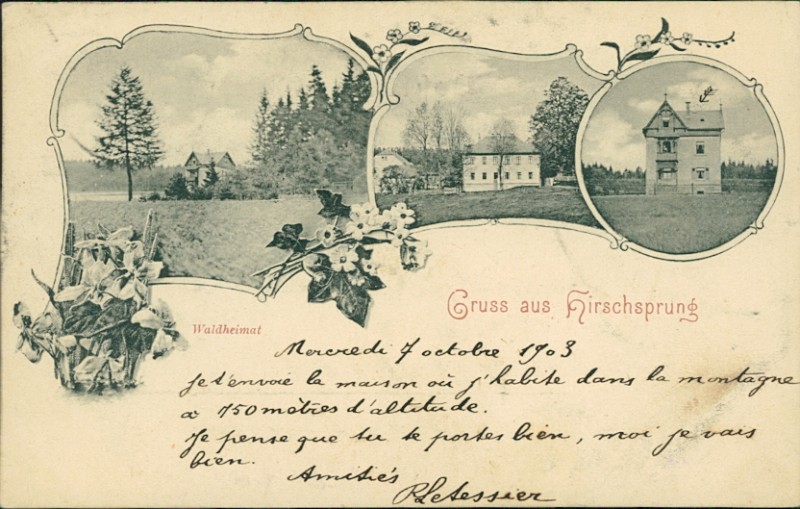 Gruss aus Hirschsprung
Waldheimat
Mercredi 7 octobre 1903
Je t'envoie la maison où j'habite dans la montagne
a 750 mètres d'altitude.
Je pense que tu te portes bien, moi je vais
bien.
Amitiés
P Letessier